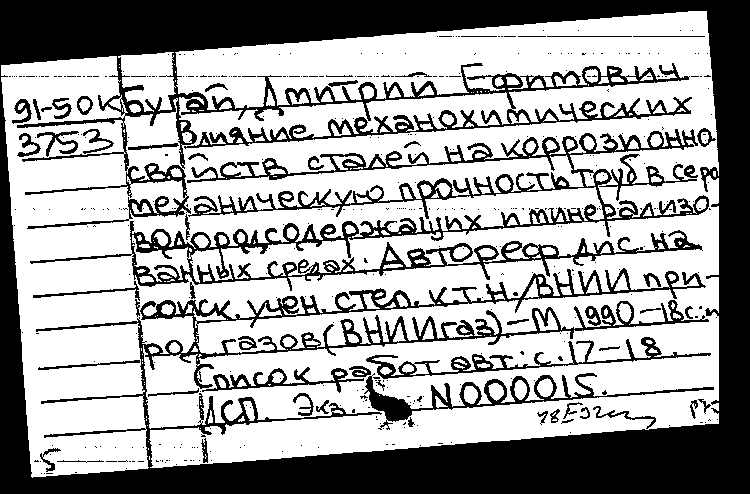 91-50К Бугай, Дмитрий Ефимович
3753 Влияние механохимических
свойств сталей на коррозионно-
механическую прочность труб в серо
водородсодержащих и минерализо-
ванных средах: Автореф. дис. на
соиск. учен. степ. к.т.н./ВНИИ при-
род. газов (ВНИИгаз).–М., 1990.–18с.:и
Список работ авт.: с. 17–18.
ДСП. Экз. N000015.
5 РК